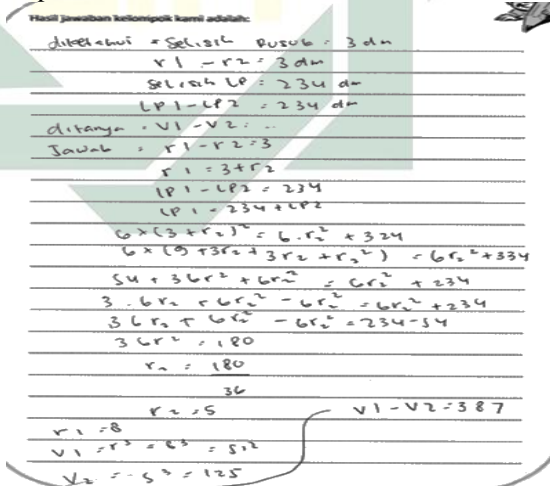 Hasil jawaban kelompok kami adalah:
diketahui : Selisih Rusuk = 3 dm
r1 - r2 = 3 dm
Selisih LP = 234 dm
LP1 - LP2 = 234 dm
ditanya : V1 - V2 = ...
Jawab : r1 - r2 = 3
r1 = 3 + r2
LP1 - LP2 = 234
LP1 = 234 + LP2
6 x (3 + r₂)² = 6 . r₂² + 324
6 x (9 + 3r₂ + 3r₂ + r₂²) = 6r₂² + 334
54 + 36r² + 6r₂² = 6r₂² + 234
3 . 6r₂ + 6r₂² - 6r₂² = 6r₂² + 234
36r₂ + 6r₂² - 6r₂² = 234 - 54
36r² = 180
r₂ = 180
36
r2 = 5
r1 = 8
V1 = r³ = 8³ = 512
V₂ = 5³ = 125
V1 - V2 = 387